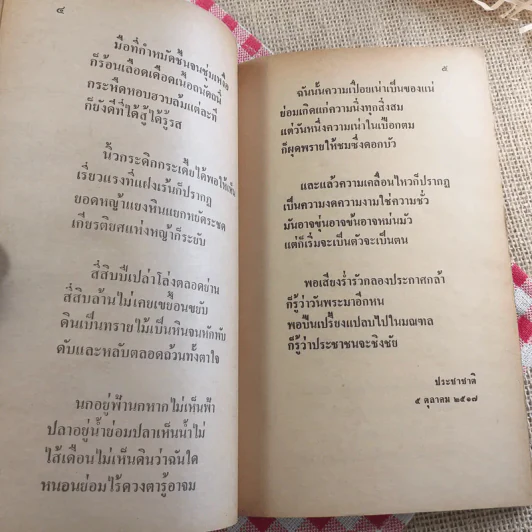 ๔
มือที่กำหมัดชื้นจนชุ่มเหงื่อ
ก็ร้อนเลือดเดือดเนื้อถนัดถนี่
กระหืดหอบฮวบล้มแต่ละที
ก็ยังดีที่ได้สู้ได้รู้รส
นิ้วกระดิกกระเดี้ยได้พอให้เห็น
เรี่ยวแรงที่แฝงเร้นก็ปรากฏ
ยอดหญ้าแยงหินแยกหยัดระชด
เกียรติยศแห่งหญ้าก็ระยับ
สี่สิบปีเปล่าโล่งตลอดย่าน
สี่สิบล้านไม่เคยเขยื้อนขยับ
ดินเป็นทรายไม้เป็นหินจนหักพับ
ดับและหลับตลอดถ้วนทั้งตาใจ
นกอยู่ฟ้านกหากไม่เห็นฟ้า
ปลาอยู่น้ำย่อมปลาเห็นน้ำไม่
ไส้เดือนไม่เห็นดินว่าฉันใด
หนอนย่อมไร้ดวงตารู้อาจม
๕
ฉันนั้นความเปื่อยเน่าเป็นของแน่
ย่อมเกิดแก่ความนิ่งทุกสิ่งสม
แต่วันหนึ่งความเน่าในเปือกตม
ก็ผุดพรายให้ชมซึ่งดอกบัว
และแล้วความเคลื่อนไหวก็ปรากฏ
เป็นความงดความงามใช่ความชั่ว
มันอาจขุ่นอาจข้นอาจหม่นมัว
แต่ก็เริ่มจะเป็นตัวจะเป็นตน
พอเสียงร่ำรัวกลองประกาศกล้า
ก็รู้ว่าวันพระมาอีกหน
พอปืนเปรี้ยงแปลบไปในมณฑล
ก็รู้ว่าประชาชนจะชิงชัย
ประชาชาติ
๕ ตุลาคม ๒๕๑๗